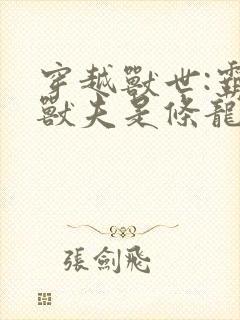 穿越獸世:霸
獸夫是條龍
張劍飛